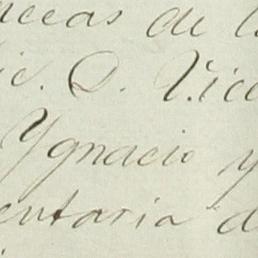 ceas de l
ic. D. Vice
Ygnacio y
entaria d